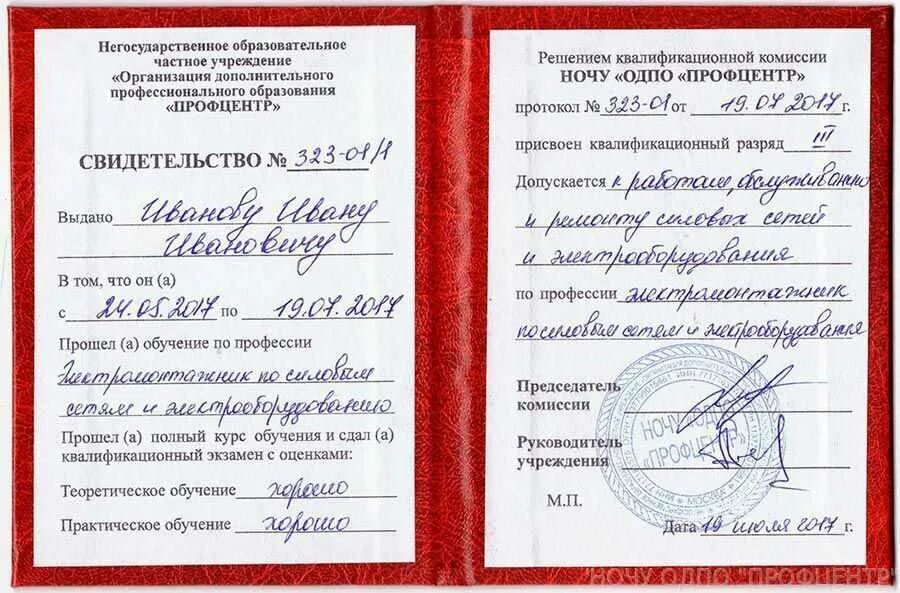 Негосударственное образовательное
частное учреждение
«Организация дополнительного
профессионального образования
«ПРОФЦЕНТР»
СВИДЕТЕЛЬСТВО № 323-01/1
Выдано Иванову Ивану
Ивановичу
В том, что он (а)
с 24.05.2017 по 19.07.2017
Прошел (а) обучение по профессии
Электромонтажник по силовым
сетям и электрооборудованию
Прошел (а) полный курс обучения и сдал (а)
квалификационный экзамен с оценками:
Теоретическое обучение хорошо
Практическое обучение хорошо
Решением квалификационной комиссии
НОЧУ «ОДПО «ПРОФЦЕНТР»
протокол № 323-01 от 19.07.2017 г.
присвоен квалификационный разряд III
Допускается к работам, обслуживанию
и ремонту силовых сетей
и электрооборудования
по профессии электромонтажник
по силовым сетям и электрооборудования
Председатель
комиссии
Руководитель
учреждения
НОЧУ «ОДПО
«ПРОФЦЕНТР»
МОСКВА
М.П.
Дата 19 июля 2017 г.
НОЧУ ОДПО "ПРОФЦЕНТР"